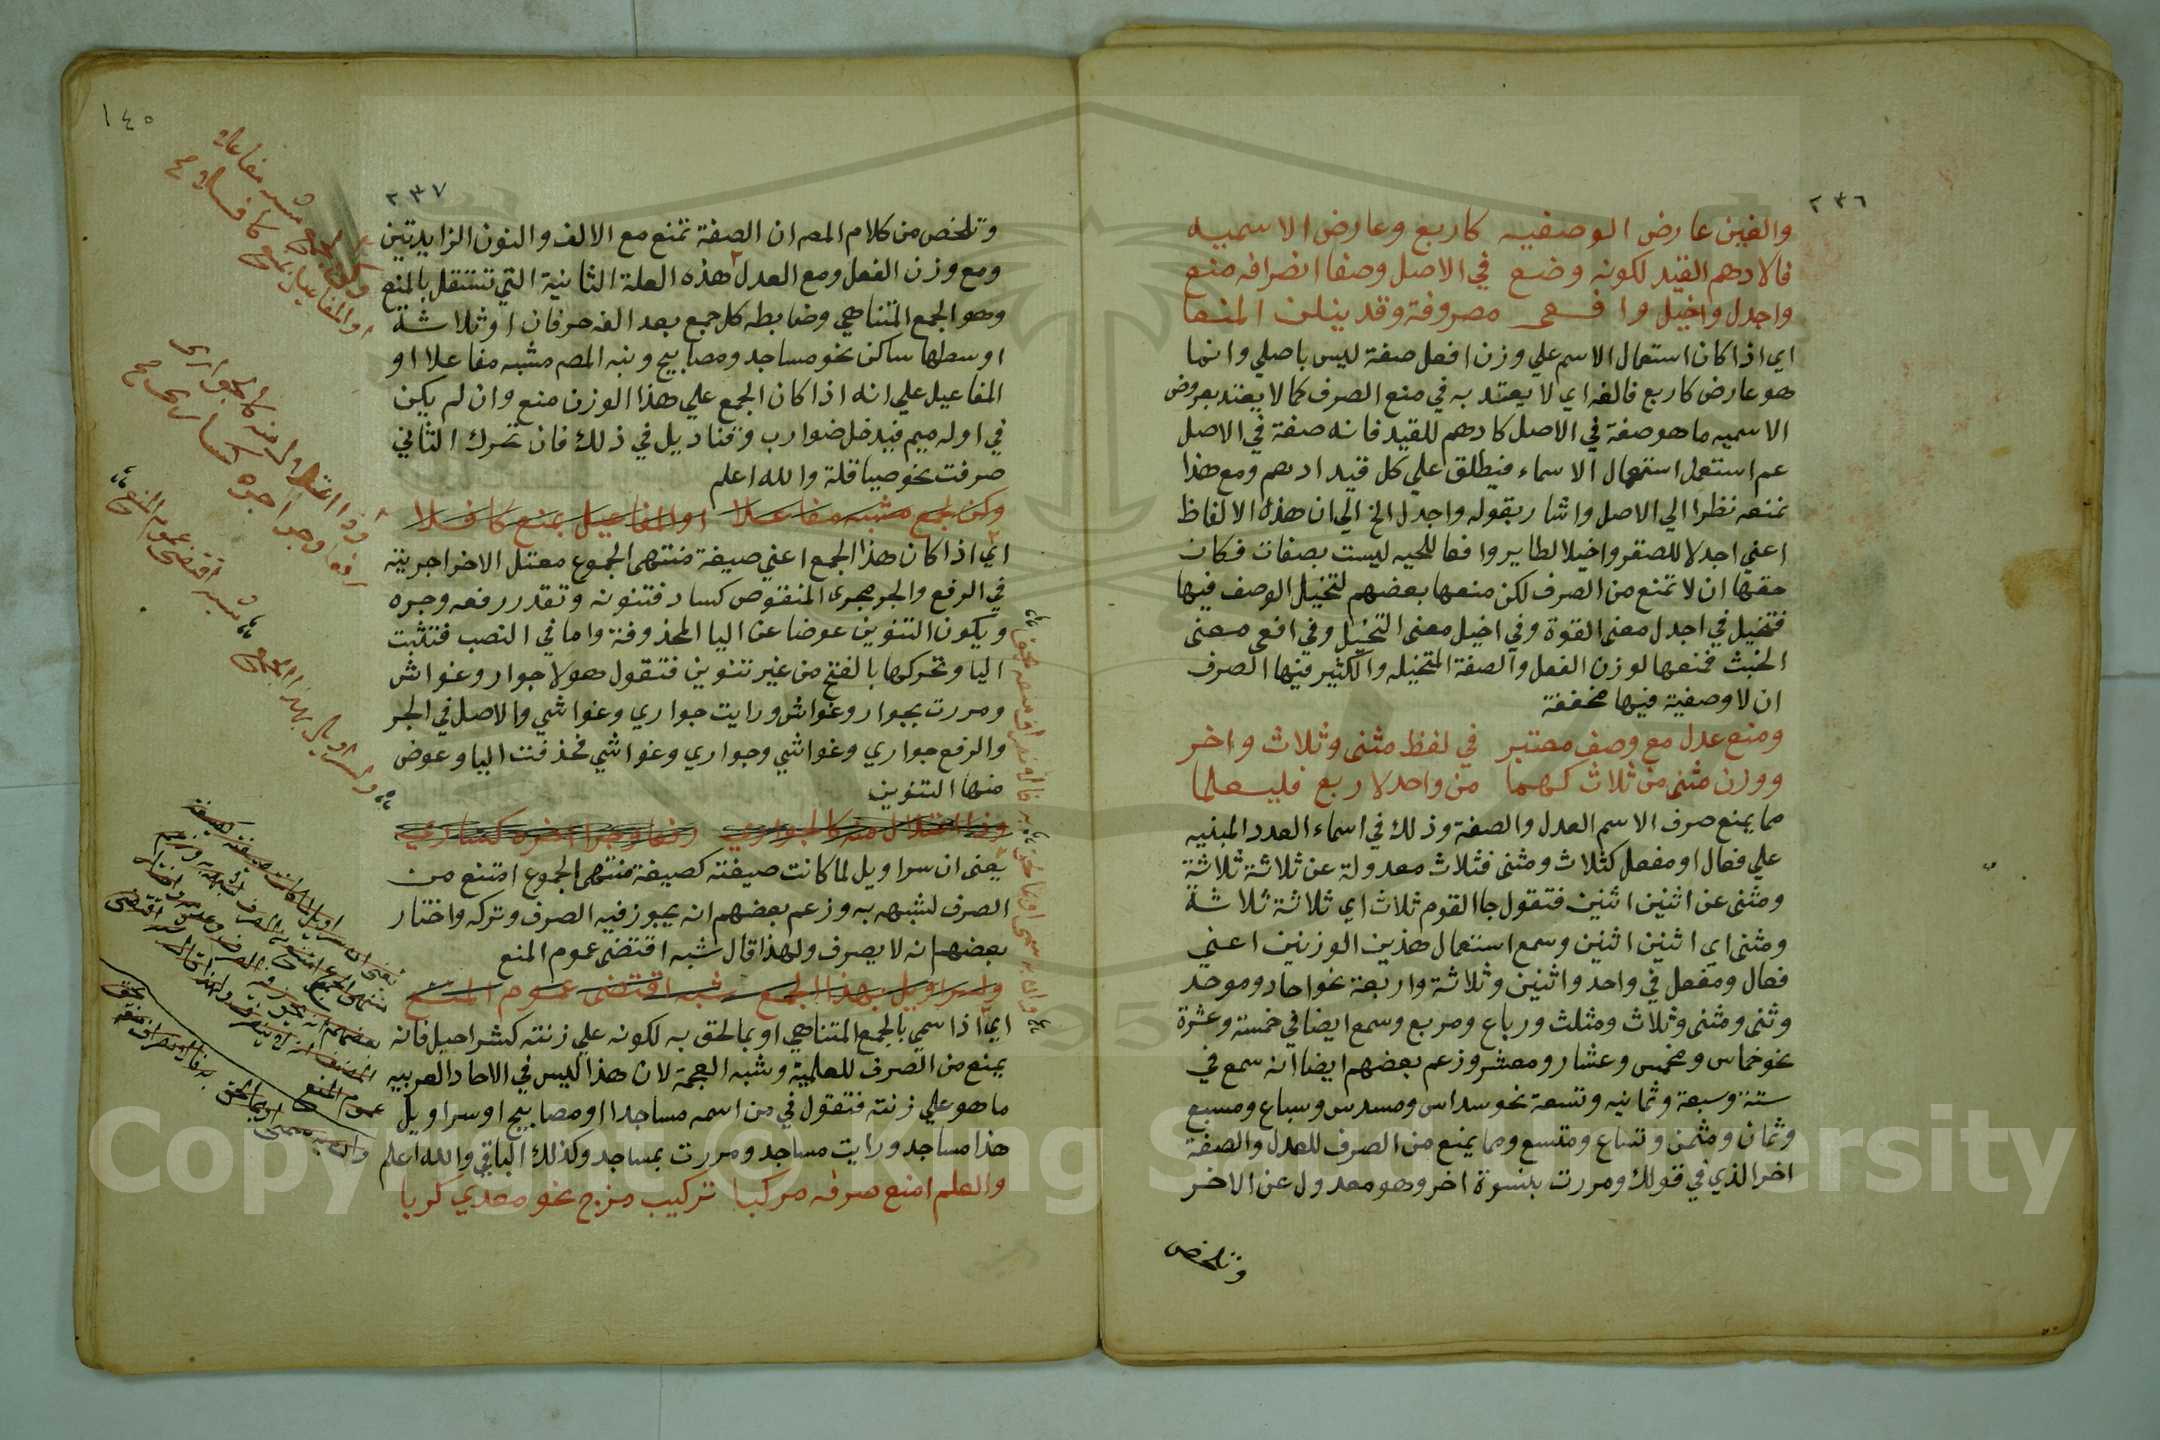 ٢٣٦
والغين عارض الوصفيه كاربع وعارض الاسميه
فالادهم القيد لكونه وضع في الاصل وصفا انصرافه منع
واجدل واخيل وافعى مصروفة وقد ينلن المنعا
اي اذا كان استعمال الاسم علي وزن افعل صفة ليس باصلي وانما
هو عارض كاربع فالغه اي لا يعتد به في منع الصرف كما لا يعتد بعروض
الاسميه ما هو صفة في الاصل كادهم للقيد فانه صفة في الاصل
عم استعمل استعمال الاسماء فيطلق علي كل قيد ادهم ومع هذا
نمنعه نظرا الي الاصل واشار بقوله واجدل الخ الي ان هذه الالفاظ
اعني اجدلا للصقر واخيلا لطاير وافعا للحيه ليست بصفات فكان
حقها ان لا تمنع من الصرف لكن منعها بعضهم لتخيل الوصف فيها
فتخيل في اجدل معنى القوة وفي اخيل معنى التخيل وفي افعى معنى
الخبث فمنعها لوزن الفعل والصفة المتخيله والكثير فيها الصرف
ان لا وصفية فيها مخففة
ومنع عدل مع وصف معتبر في لفظ مثنى وثلاث واخر
ووزن مثنى من ثلاث كهما من واحد لاربع فليعلما
مما يمنع صرف الاسم العدل والصفة وذلك في اسماء العدد المبنيه
علي فعال او مفعل كثلاث ومثنى فثلاث معدولة عن ثلاثة ثلاثة
ومثنى عن اثنين اثنين فتقول جا القوم ثلاث اي ثلاثة ثلاثة
ومثنى اي اثنين اثنين وسمع استعمال هذين الوزنين اعني
فعال ومفعل في واحد واثنين وثلاثة واربعة نحو احاد وموحد
وثنى ومثنى وثلاث ومثلث ورباع ومربع وسمع ايضا في خمسة وعشرة
نحو خماس ومخمس وعشار ومعشر وزعم بعضهم ايضا انه سمع في
ستة وسبعة وثمانيه وتسعة نحو سداس ومسدس وسباع ومسبع
وثمان ومثمن وتساع ومتسع ومما يمنع من الصرف للعدل والصفة
اخر الذي في قولك ومررت بنسوة اخر وهو معدول عن الاخر
وتلخص
١٤٥
٢٣٧
وتلخص من كلام المص ان الصفة تمنع مع الالف والنون الزايدتين
ومع وزن الفعل ومع العدل هذه العلة الثانية التي تستقل بالمنع
وهو الجمع المتناهي وضابطه كل جمع بعد الفه حرفان او ثلاثة
اوسطها ساكن نحو مساجد ومصابيح ونبه المص مشبه مفاعلا او
المفاعيل علي انه اذا كان الجمع علي هذا الوزن منع وان لم يكن
في اوله ميم فيدخل ضوارب وقناديل في ذلك فان تحرك الثاني
صرفت نحو صياقلة والله اعلم
وكن لجمع مشبه مفاعلا او المفاعيل بمنع كافلا
اي اذا كان هذا الجمع اعني صيغة منتهى الجموع معتل الاخر اجريته
في الرفع والجر مجرى المنقوص كسار فتنونه وتقدر رفعه وجره
ويكون التنوين عوضا عن اليا المحذوفة واما في النصب فتثبت
اليا وتحركها بالفتح من غير تنوين فتقول هولا جوار وغواش
ومررت بجوار وغواش ورايت جواري وغواشي والاصل في الجر
والرفع جواري وغواشي وجواري وغواشي فحذفت اليا وعوض
منها التنوين
وذا اعتلال منه كالجواري رفعا وجرا اجره كساري
يعنى ان سراويل لما كانت صيغته كصيغة منتهى الجموع امتنع من
الصرف لشبهه به وزعم بعضهم انه يجوز فيه الصرف وتركه واختار
بعضهم انه لا يصرف ولهذا قال شبه اقتضى عموم المنع
ولسراويل بهذا الجمع شبه اقتضى عموم المنع
اي اذا سمي بالجمع المتناهي او بما لحق به لكونه علي زنته كشراحيل فانه
يمنع من الصرف للعلمية وشبه العجمة لان هذا ليس في الاحاد العربيه
ما هو علي زنته فتقول في من اسمه مساجدا او مصابيح او سراويل
هذا مساجد ورايت مساجد ومررت بمساجد وكذلك الباقي والله اعلم
والعلم امنع صرفه مركبا تركيب مزج نحو معدي كربا
وكن لجمع مشبه مفاعلا
او المفاعيل بمنع كافلا صح
وذا اعتلال منه كالجواري
رفعا وجرا اجره كساري صح
ولسراويل بهذا الجمع شبه اقتضى عموم المنع
وان به سمي او بما لحق به فالانصراف منعه يحق
يعنى ان سراويل لما كانت صيغته كصيغة
منتهى الجموع امتنع من الصرف لشبهه به وزعم
بعضهم انه يجوز فيه الصرف
عموم المنع
وان به سمي او بما لحق به فالانصراف منعه يحق
Copyright © King Saud University